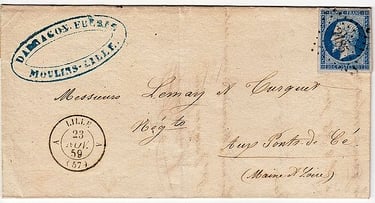 DARRAGON FRÈRES
MOULINS-LILLE.
Messieurs Leman et Curquet
Nég.ts
Aux Ponts de Cé
(Maine & Loire)
LILLE
23
NOV.
59
(57)